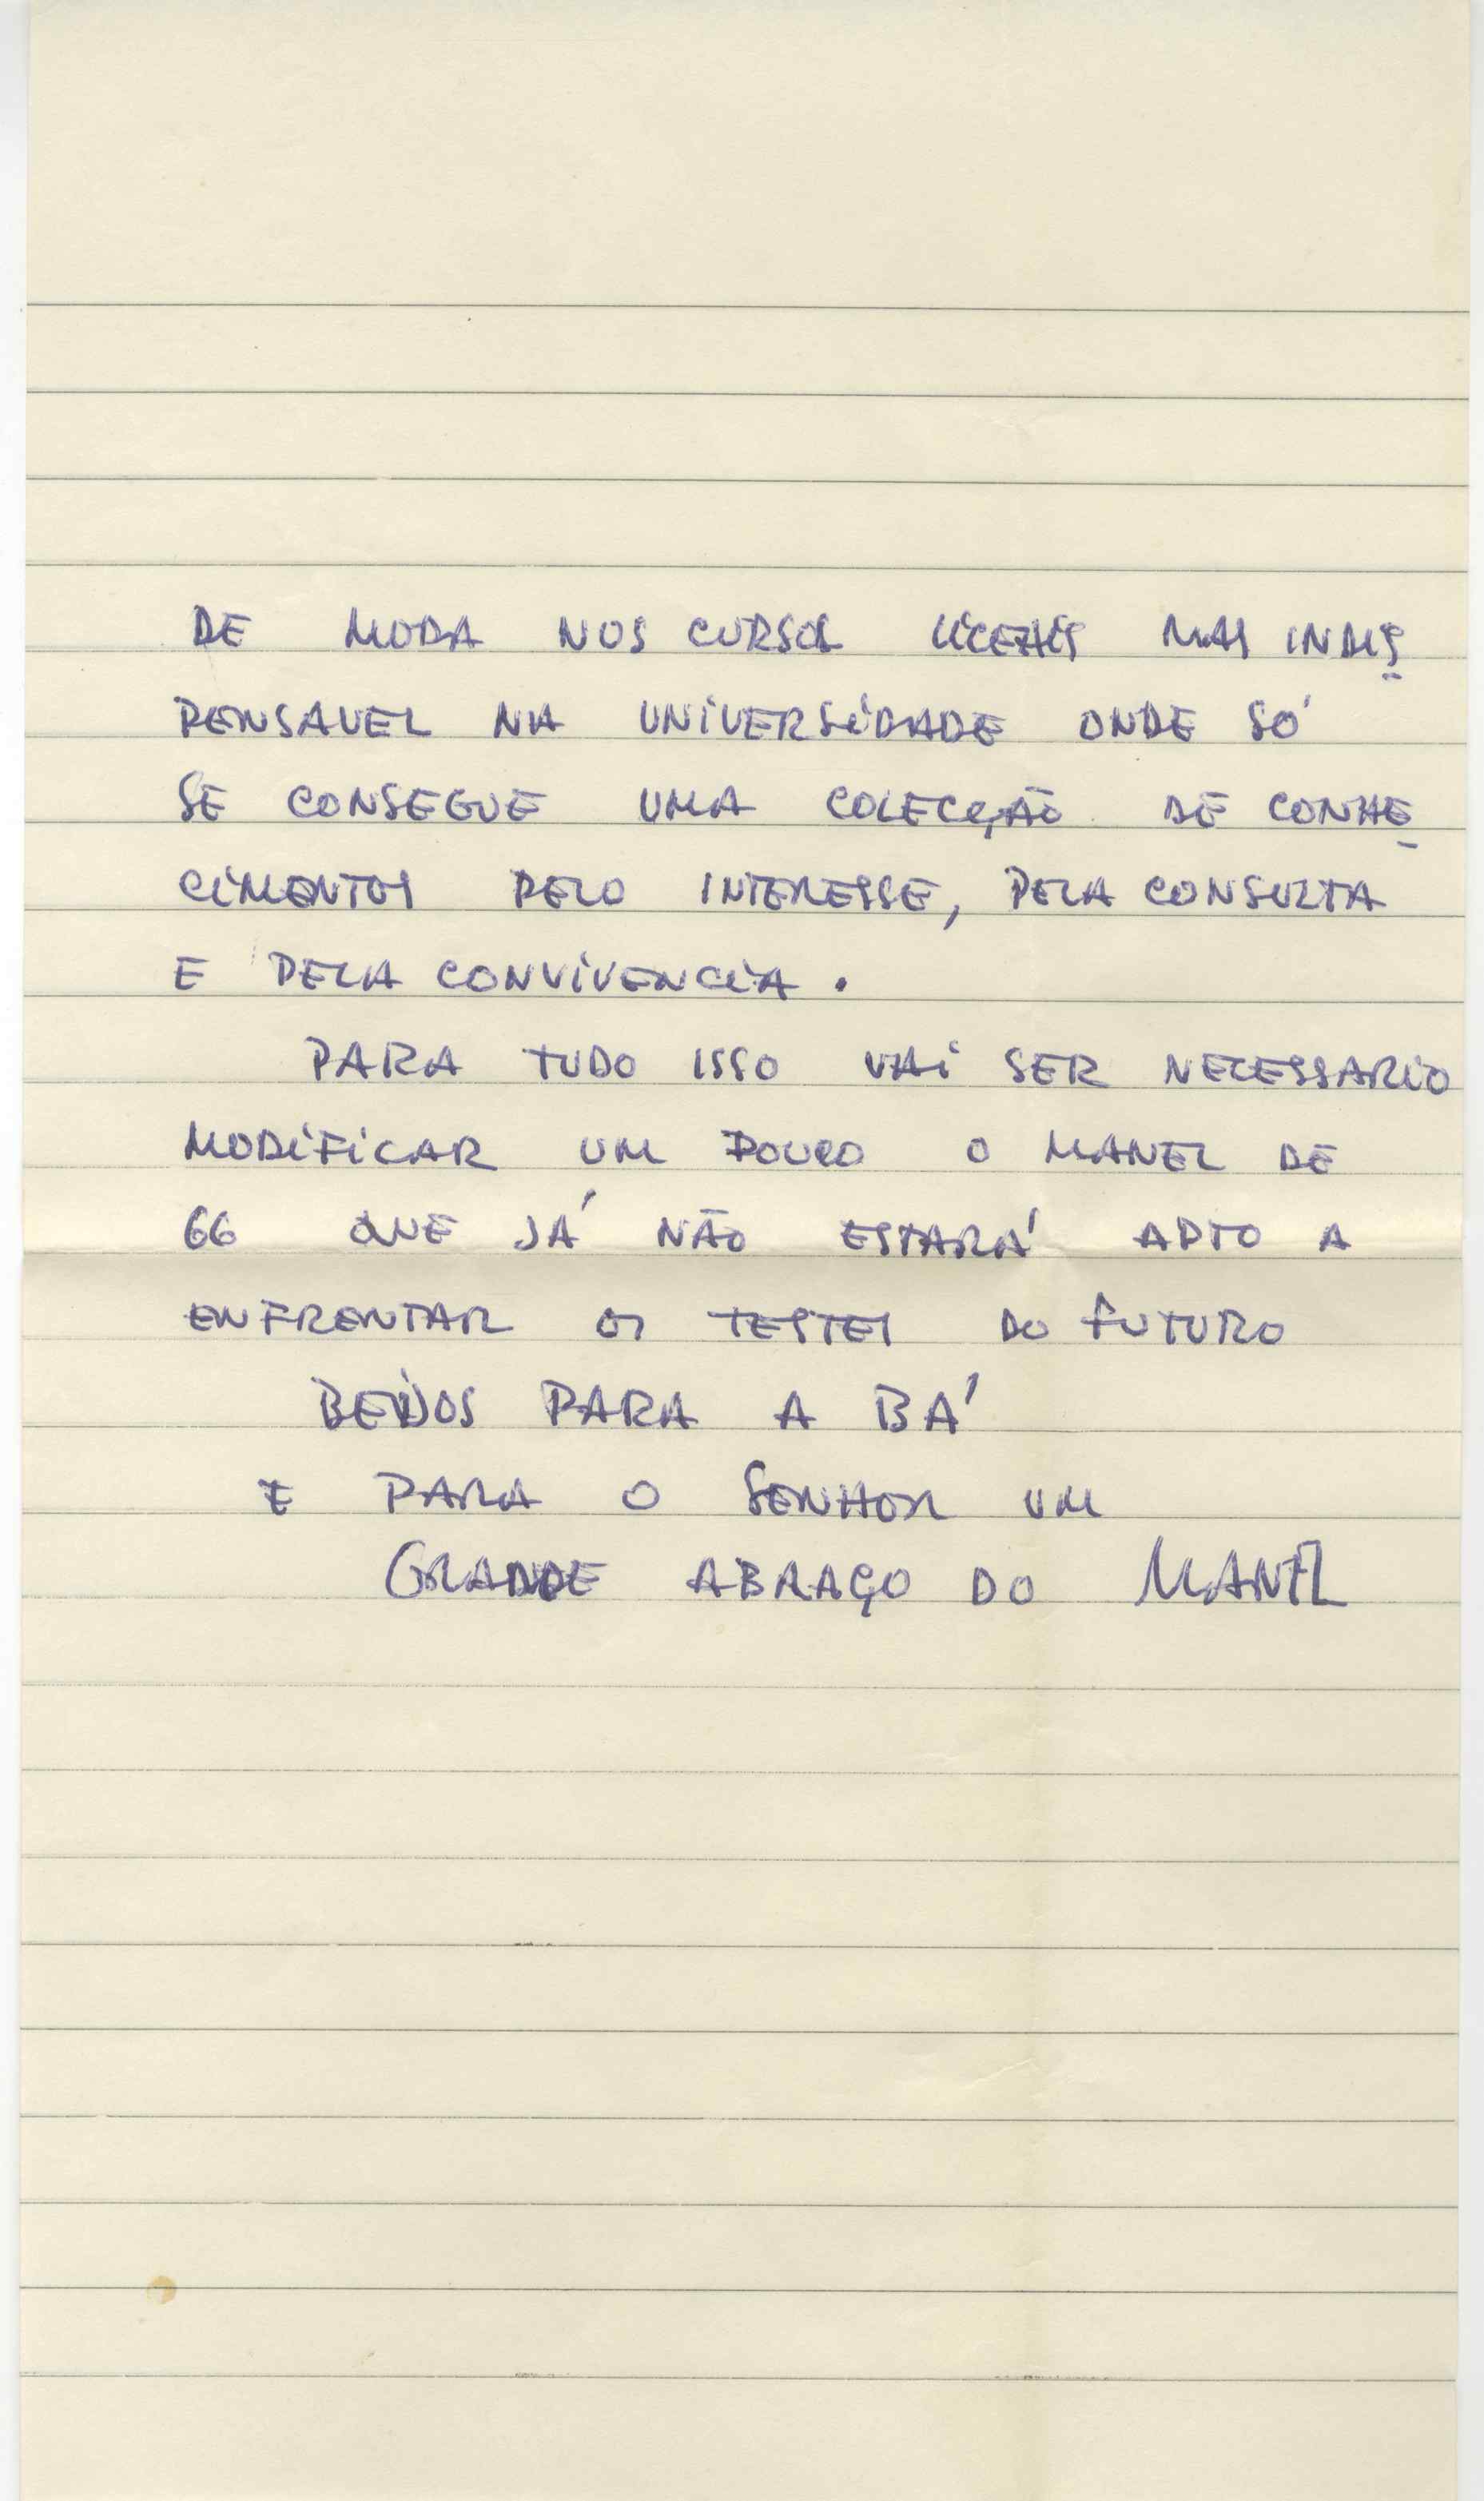 DE MODA NOS CURSOS LICEAIS MAS INDIS
PENSAVEL NA UNIVERSIDADE ONDE SÓ
SE CONSEGUE UMA COLECÇÃO DE CONHE
CIMENTOS PELO INTERESSE, PELA CONSULTA
E PELA CONVIVENCIA.
PARA TUDO ISSO VAI SER NECESSARIO
MODIFICAR UM POUCO O MANEL DE
66 QUE JÁ NÃO ESTARÁ APTO A
ENFRENTAR OS TESTES DO FUTURO
BEIJOS PARA A BÁ
E PARA O SENHOR UM
GRANDE ABRAÇO DO MANEL